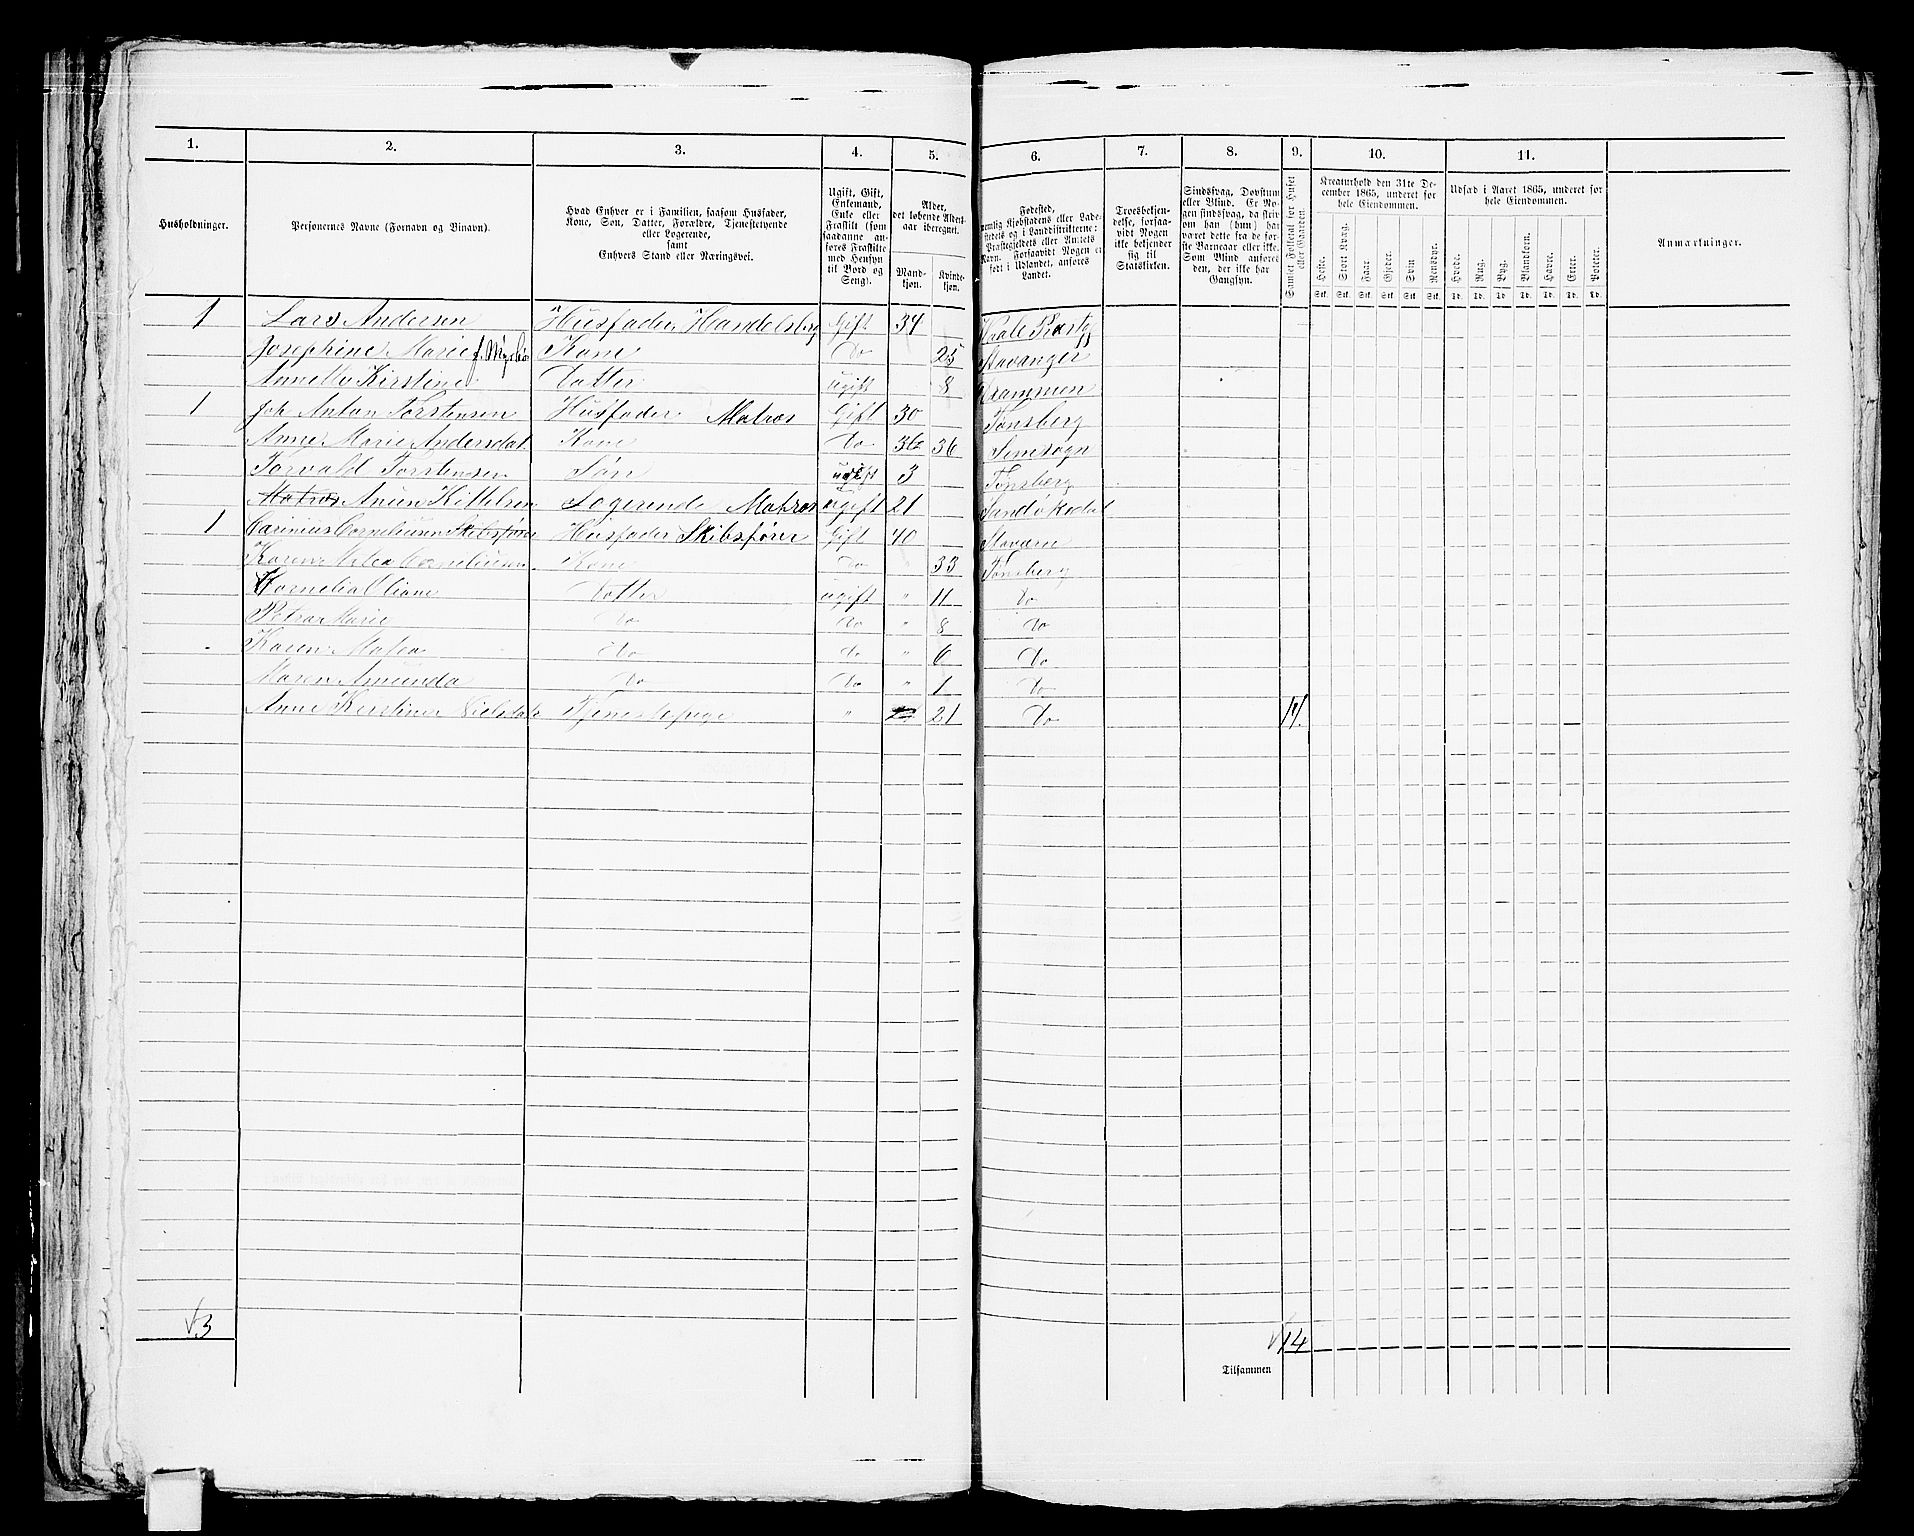 1. 2. 3. 4. 5. 6. 7. 8. 9. 10. 11.
Husholdninger.
Personernes Navne (Fornavn og Binavn).
Hvad Enhver er i Familien, saasom Husfader,
Kone, Søn, Datter, Forældre, Tjenestetyende
eller Logerende,
samt
Enhvers Stand eller Næringsvei.
Ugift, Gift,
Enkemand,
Enke eller
Fraskilt (som
saadanne an-
føres Fraskilte
med Hensyn
til Bord og
Seng).
Alder,
det løbende Alders-
aar iberegnet.
Mand-
kjøn.
Kvinde-
kjøn.
Fødested,
nemlig Kjøbstadens eller Lade-
stedets og i Landdistrikterne:
Præstegjeldets eller Amtets
Navn. Forsaavidt Nogen er
født i Udlandet, anføres
Landet.
Troesbekjen-
delse, forsaa-
vidt Nogen
ikke bekjender
sig til
Statskirken.
Sindssvag, Døvstum
eller Blind. Er No-
gen sindssvag, da skriv
om han (hun) har
været dette fra de før-
ste Barneaar eller ikke.
Som Blind anføres
den, der ikke har
Gangsyn.
Samlet Folketal for Huset
eller Gaarden.
Kreaturhold den 31te De-
cember 1865, underet for
hele Eiendommen.
Heste. Stort Kvæg. Faar. Gjeder. Svin Rensdyr.
Stk. Stk. Stk. Stk. Stk. Stk.
Udsæd i Aaret 1865, underet for
hele Eiendommen.
Hvede. Rug. Byg. Blandkorn. Havre. Erter. Poteter.
Td. Td. Td. Td. Td. Td. Td.
Anmærkninger.
1 Lars Andersen Husfader Handelsbg Gift 34 Vaale Præstgj
Josephine Marie f. Kone Do 25 Stavanger
Annette Kirstine Datter ugift 8 Drammen
1 Joh Anton Torstensen Husfader Matros Gift 30 Tønsberg
Anne Marie Andersdat Kone Do 36 Semsogn
Torvald Torstensen Søn ugift 3 Tønsberg
Matros Anun Kittelsen Logerende Matros ugift 21 Sandøkedal
1 Carinius Corneliusen Skibsfører Husfader Skibsfører Gift 40 Stavern
Karen Malea Corneliusen Kone Do 33 Tønsberg
Cornelia Oliane Datter ugift " 11 Do
Petra Marie Do Do " 8 Do
Karen Malea Do Do " 6 Do
Maren Amunda Do Do " 1 Do
Anne Kirstine Nielsdatr Tjenestepige " 21 Do 14.
3 14
Tilsammen